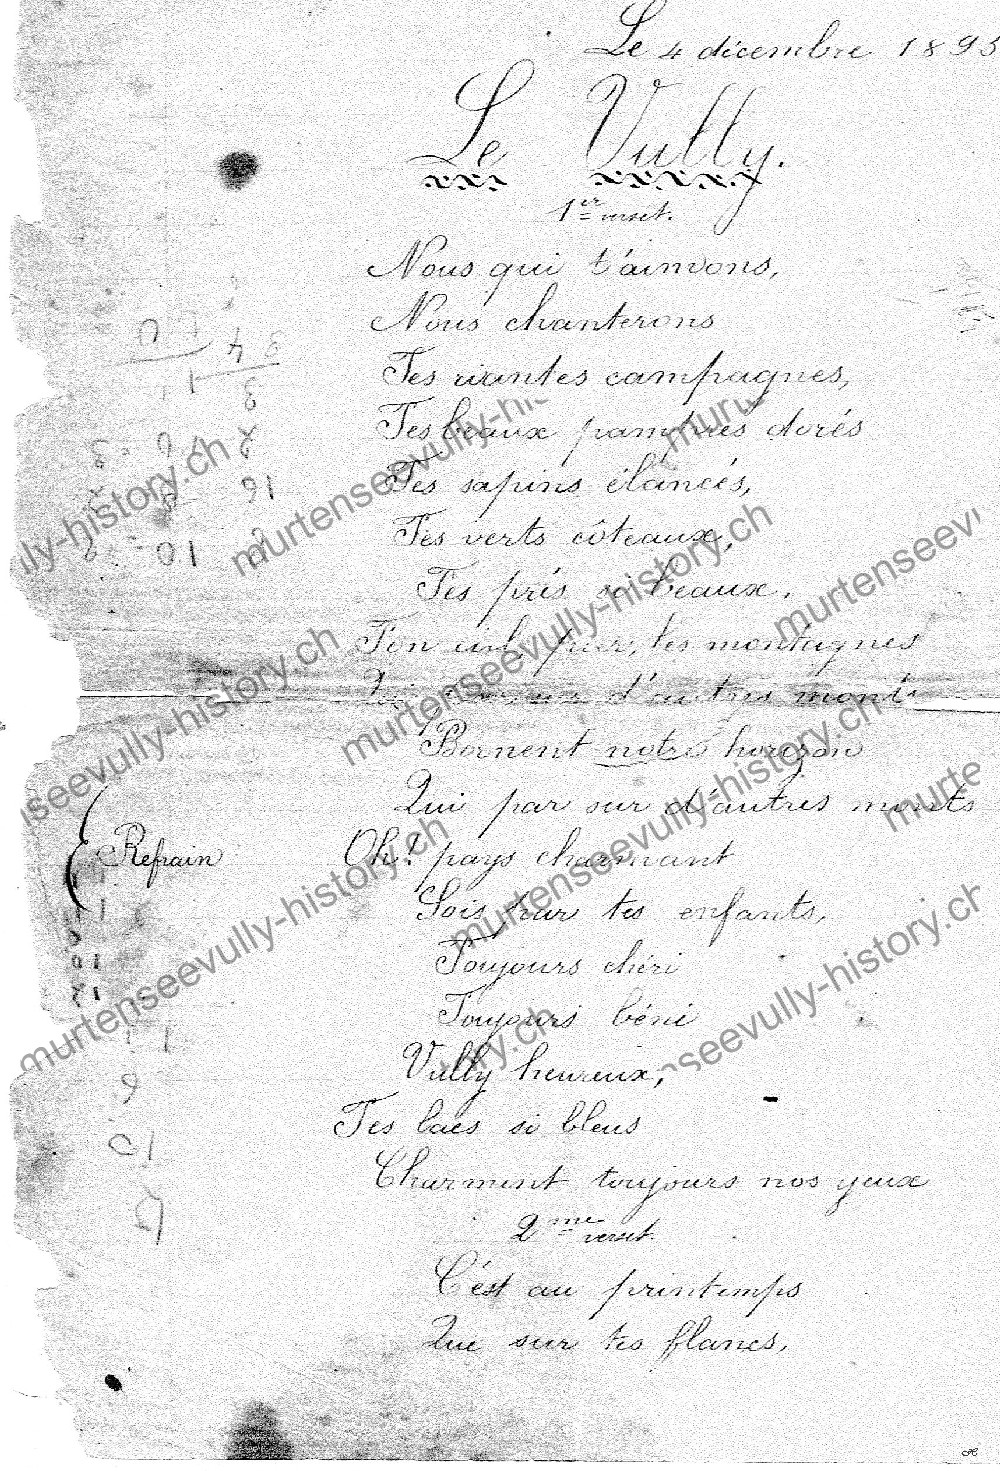 Le 4 décembre 1895
Le Vully.
1er verset.
Nous qui t'aimons,
Nous chanterons
Tes riantes campagnes,
Tes beaux pampres dorés
Tes sapins élancés,
Tes verts côteaux,
Tes prés si beaux.
Ton ciel pur, tes montagnes
Qui d'autres monts
Bornent notre horizon
Qui par sur d'autres monts
Refrain
Oh! pays charmant
Sois pour tes enfants,
Toujours chéri
Toujours béni
Vully heureux,
Tes lacs si bleus
Charment toujours nos yeux
2me verset.
C'est au printemps
Que sur tes flancs,
murtenseevully-history.ch